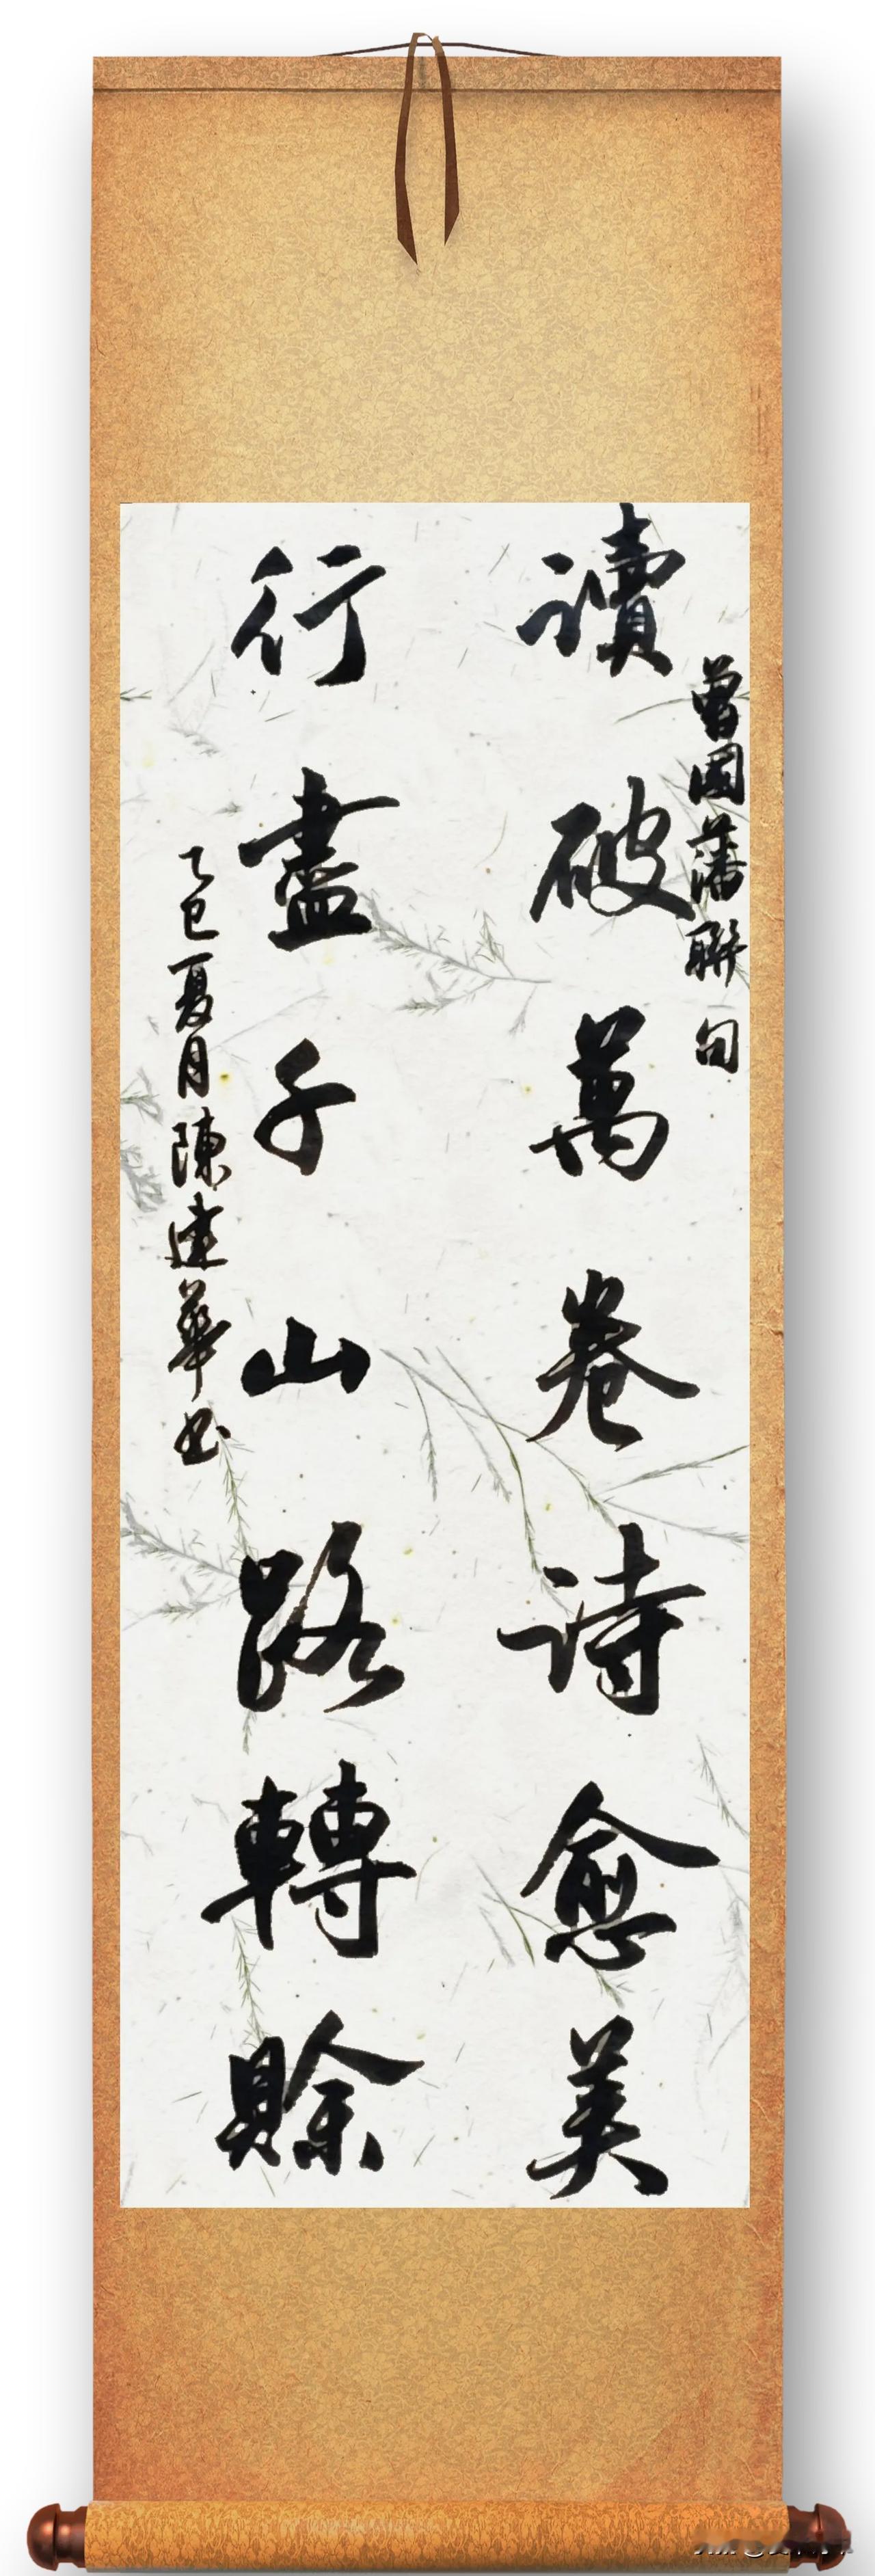 曾國藩聯句
讀破萬卷詩愈美
行盡千山路轉賒
乙巳夏月陳達華書